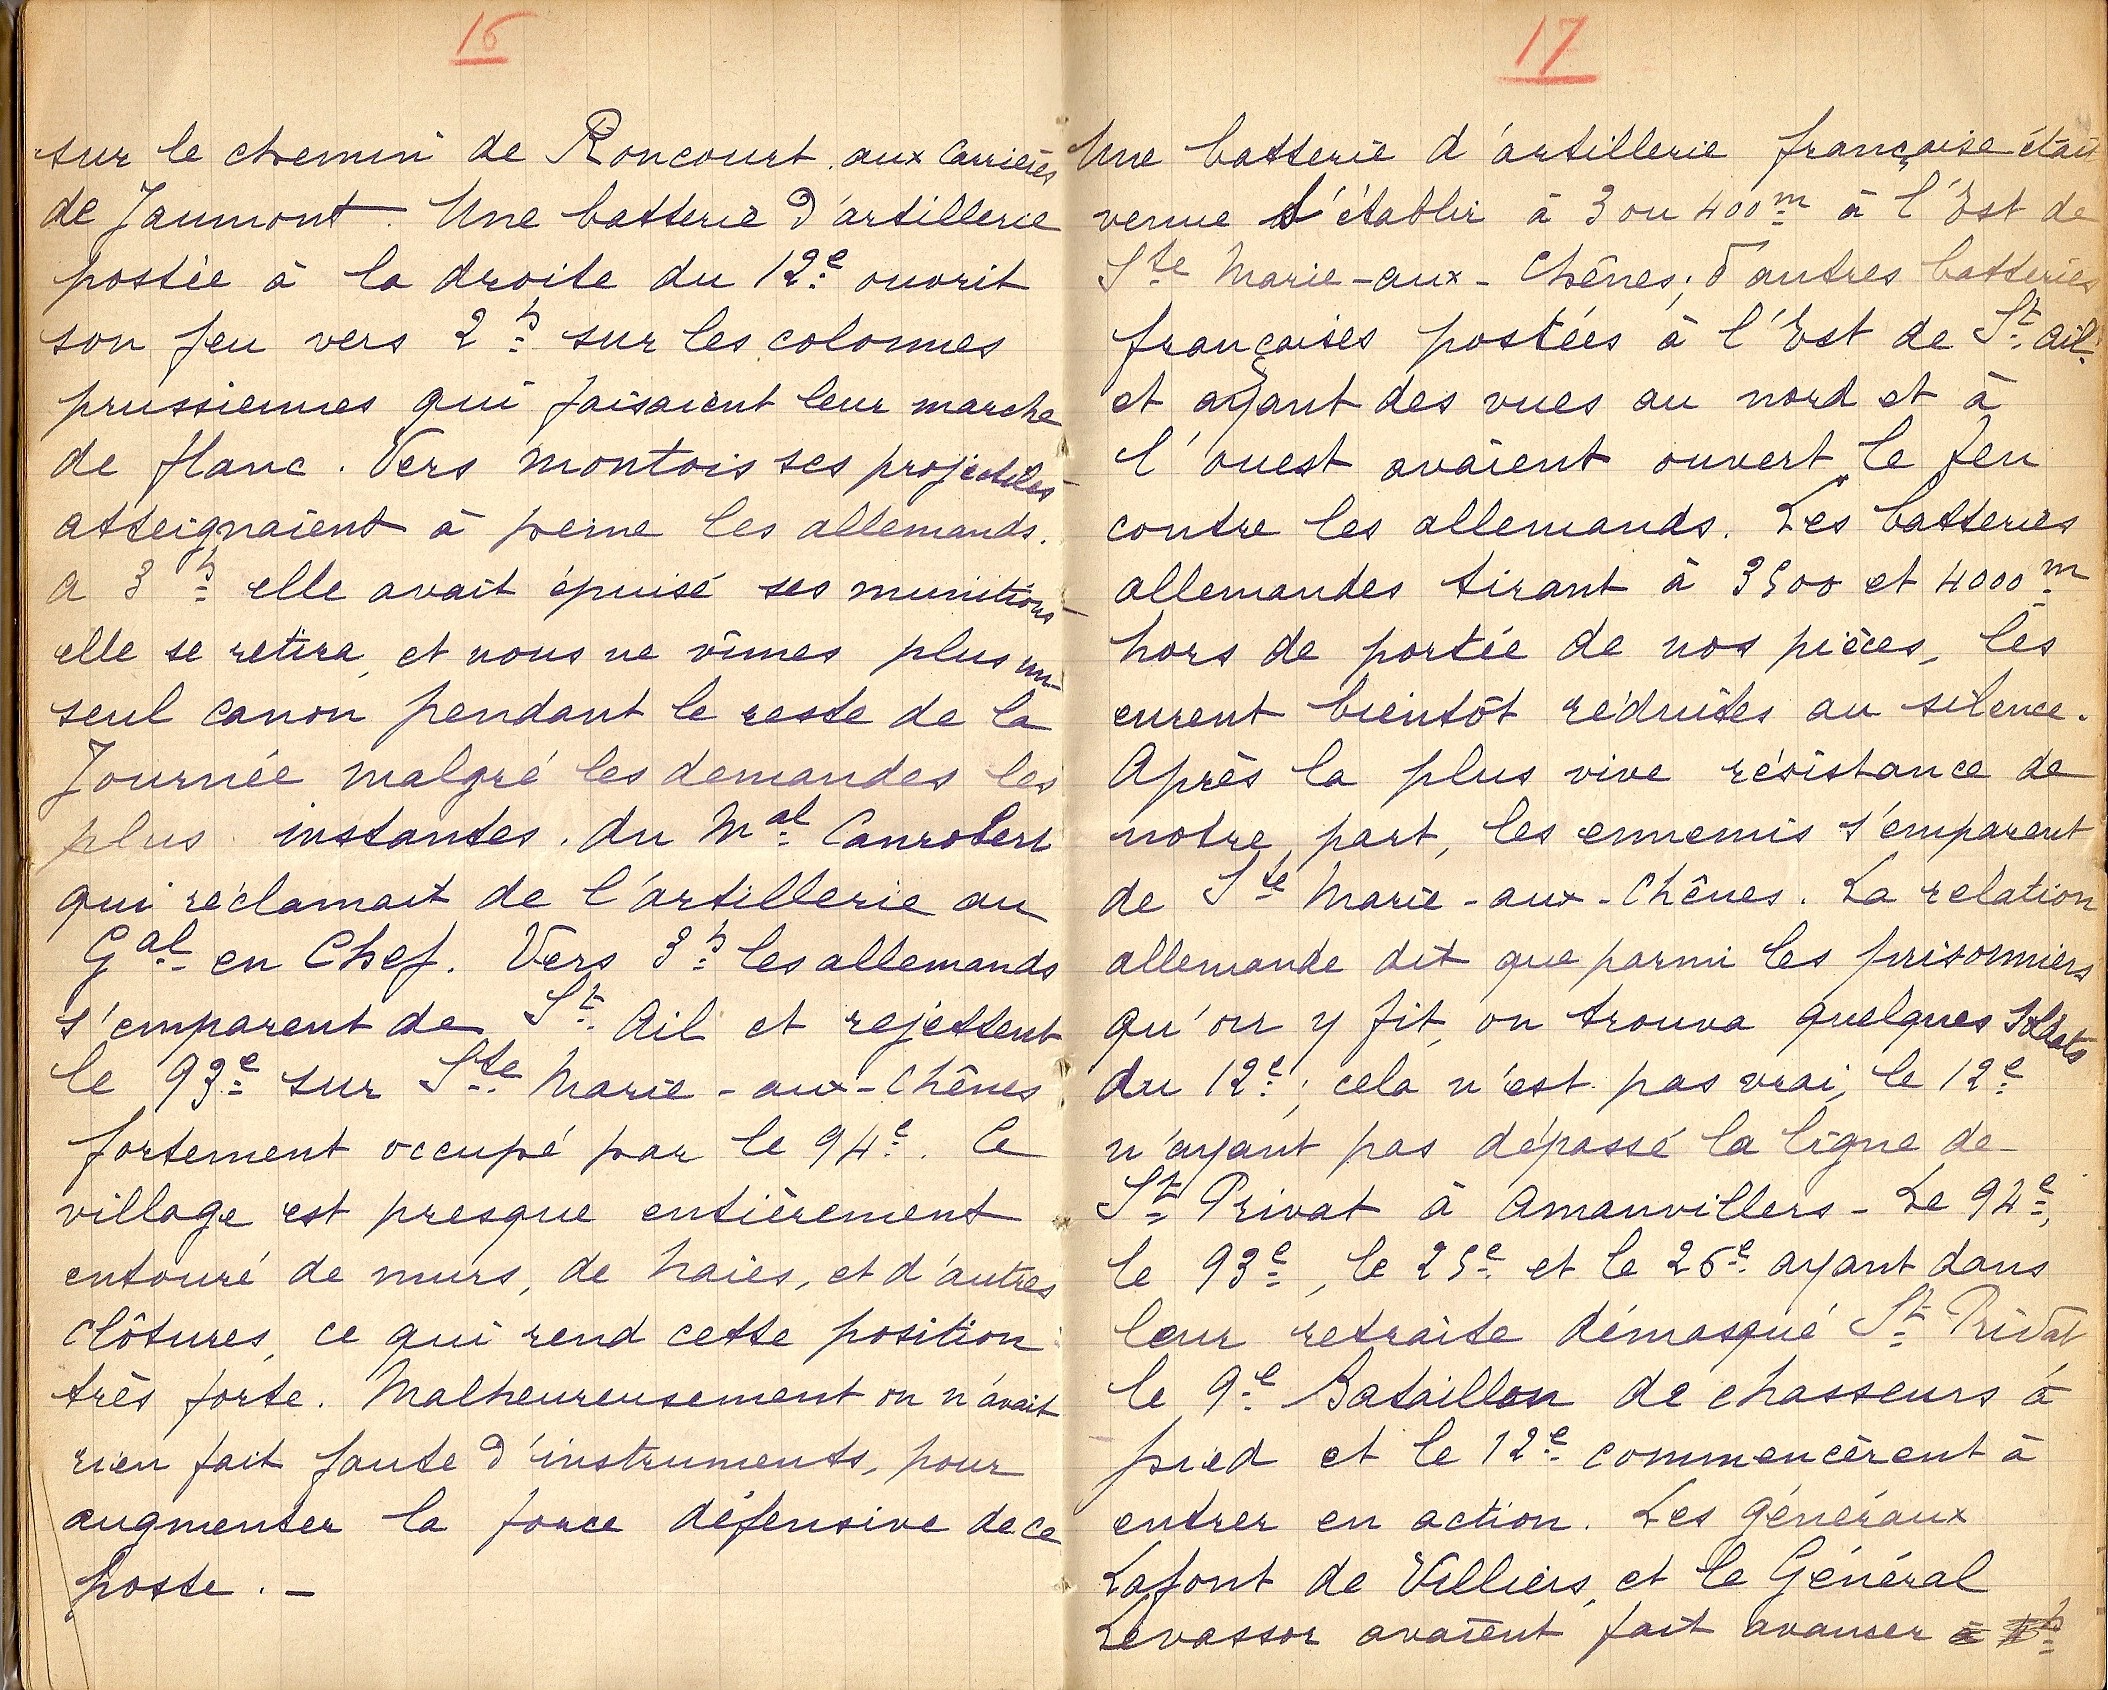 16
sur le chemin de Roncourt aux Carrières
de Jaumont. Une batterie d'artillerie
postée à la droite du 12e ouvrit
son feu vers 2h sur les colonnes
prussiennes qui faisaient leur marche
de flanc. Vers Montois ses projectiles
atteignaient à peine les allemands.
a 3h elle avait épuisé ses munitions
elle se retira, et nous ne vîmes plus un
seul canon pendant le reste de la
Journée malgré les demandes les
plus instantes. du Mal Canrobert
qui réclamait de l'artillerie au
Gal en Chef. Vers 3h les allemands
s'emparent de St Ail et rejettent
le 93e sur Ste Marie-aux-Chênes
fortement occupé par le 94e. Ce
village est presque entièrement
entouré de murs, de haies, et d'autres
clôtures, ce qui rend cette position
très forte. Malheureusement on n'avait
rien fait faute d'instruments, pour
augmenter la force défensive de ce
poste. –
17
Une batterie d'artillerie française était
venue s'établir à 3 ou 400m à l'Est de
Ste Marie-aux-Chênes; d'autres batteries
françaises postées à l'Est de St Ail
et ayant des vues au nord et à
l'ouest avaient ouvert le feu
contre les allemands. Les batteries
allemandes tirant à 3500 et 4000m
hors de portée de nos pièces, les
eurent bientôt réduites au silence.
Après la plus vive résistance de
notre part, les ennemis s'emparent
de Ste Marie-aux-Chênes. La relation
allemande dit que parmi les prisonniers
qu'on y fit, on trouva quelques soldats
du 12e; cela n'est pas vrai, le 12e
n'ayant pas dépassé la ligne de
St Privat à Amanvillers – Le 94e,
le 93e, le 25e et le 26e ayant dans
leur retraite démasqué St Privat
le 9e Bataillon de chasseurs à
pied et le 12e commencèrent à
entrer en action. Les généraux
Lafont de Villiers, et le Général
Levassor avaient fait avancer